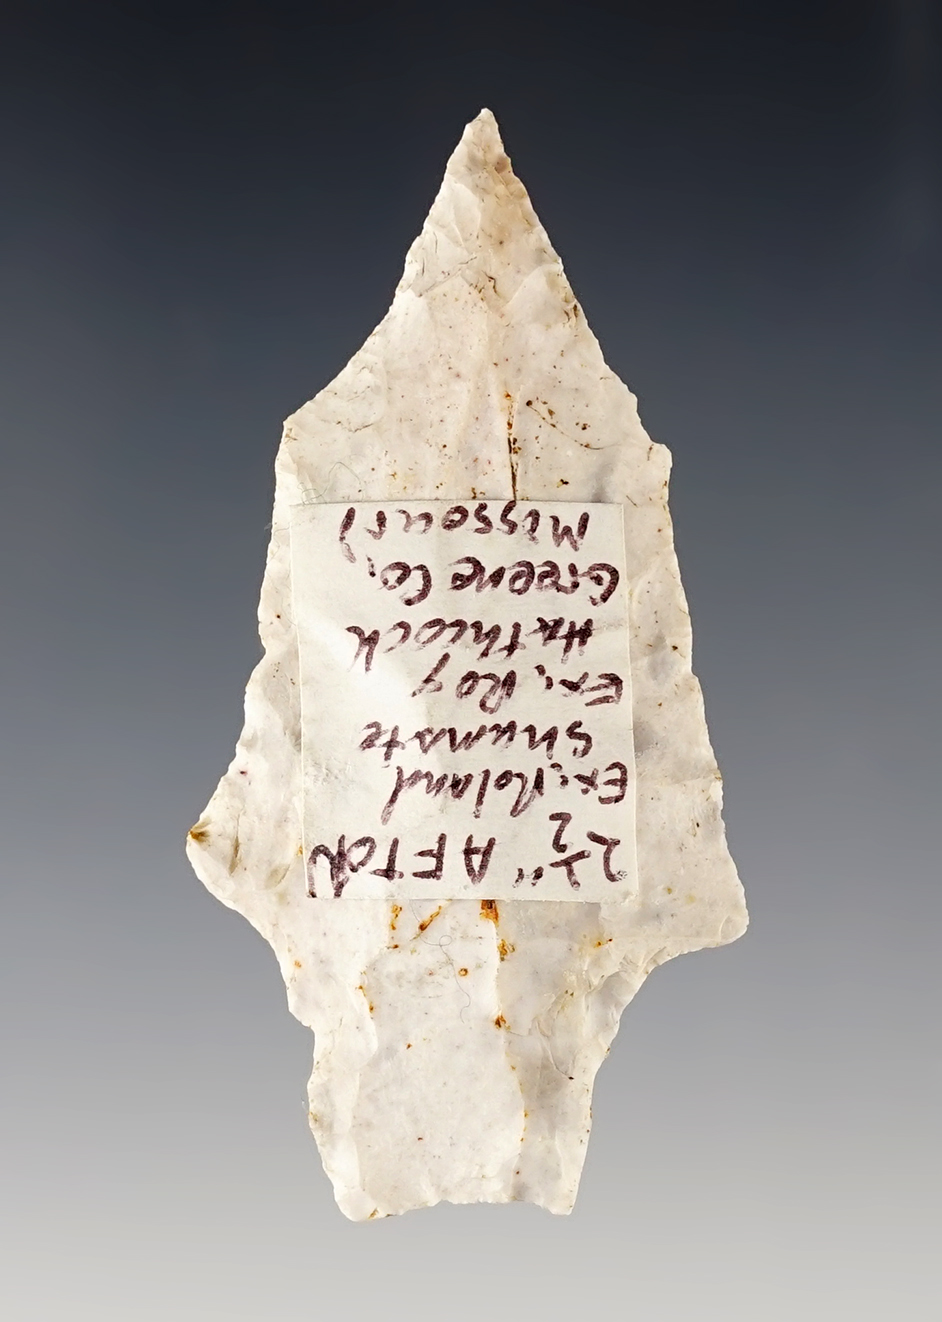 2 1/2" AFTON
Ex; Roland
Shumate
Ex; Roy
Hathcock
Greene Co,
Missouri